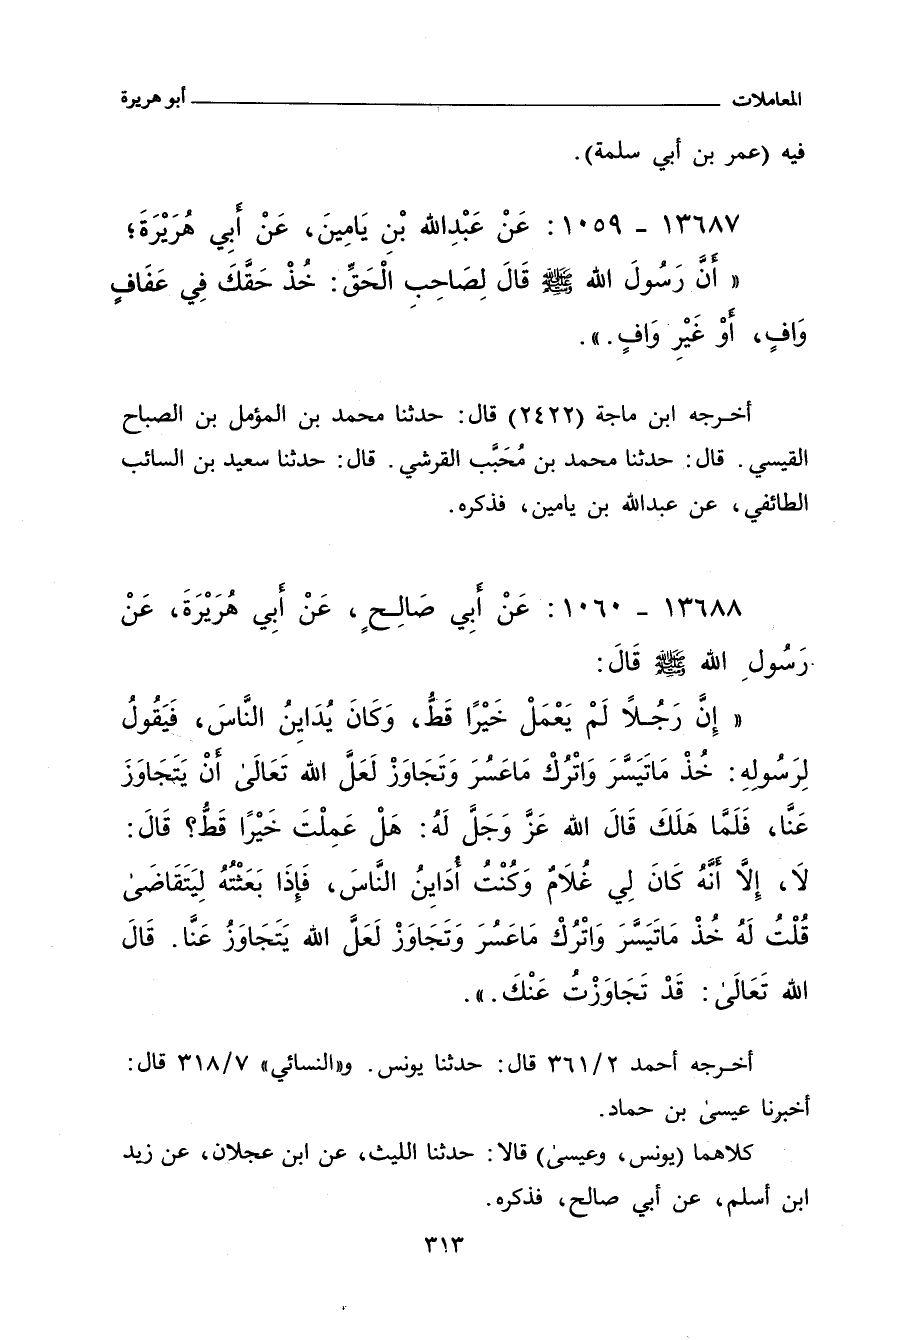 المعاملات ــــــــــــــــــــ أبو هريرة
فيه (عمر بن أبي سلمة).
١٣٦٨٧ - ١٠٥٩: عَنْ عَبْدِالله بْنِ يَامِينَ، عَنْ أَبِي هُرَيْرَةَ؛
« أَنَّ رَسُولَ الله ﷺ قَالَ لِصَاحِبِ الْحَقِّ: خُذْ حَقَّكَ فِي عَفَافٍ
وَافٍ، أَوْ غَيْرِ وَافٍ.».
أخـرجه ابن ماجة (٢٤٢٢) قال: حدثنا محمد بن المؤمل بن الصباح
القيسي. قال: حدثنا محمد بن مُحَبَّب القرشي. قال: حدثنا سعيد بن السائب
الطائفي، عن عبدالله بن يامين، فذكره.
١٣٦٨٨ - ١٠٦٠: عَنْ أَبِي صَالِـحٍ، عَنْ أَبِي هُرَيْرَةَ، عَنْ
رَسُولِ الله ﷺ قَالَ:
« إِنَّ رَجُـلًا لَمْ يَعْمَلْ خَيْرًا قَطُّ، وَكَانَ يُدَايِنُ النَّاسَ، فَيَقُولُ
لِرَسُولِهِ: خُذْ مَاتَيَسَّرَ وَاتْرُكْ مَاعَسُرَ وَتَجَاوَزْ لَعَلَّ الله تَعَالَىٰ أَنْ يَتَجَاوَزَ
عَنَّا، فَلَمَّا هَلَكَ قَالَ الله عَزَّ وَجَلَّ لَهُ: هَلْ عَمِلْتَ خَيْرًا قَطُّ؟ قَالَ:
لَا، إِلَّا أَنَّهُ كَانَ لِي غُلَامٌ وَكُنْتُ أُدَايِنُ النَّاسَ، فَإِذَا بَعَثْتُهُ لِيَتَقَاضَىٰ
قُلْتُ لَهُ خُذْ مَاتَيَسَّرَ وَاتْرُكْ مَاعَسُرَ وَتَجَاوَزْ لَعَلَّ الله يَتَجَاوَزُ عَنَّا. قَالَ
الله تَعَالَىٰ: قَدْ تَجَاوَزْتُ عَنْكَ.».
أخـرجه أحمد ٣٦١/٢ قال: حدثنا يونس. و«النسائي» ٣١٨/٧ قال:
أخبرنا عيسىٰ بن حماد.
كلاهما (يونس، وعيسىٰ) قالا: حدثنا الليث، عن ابن عجلان، عن زيد
ابن أسلم، عن أبي صالح، فذكره.
٣١٣